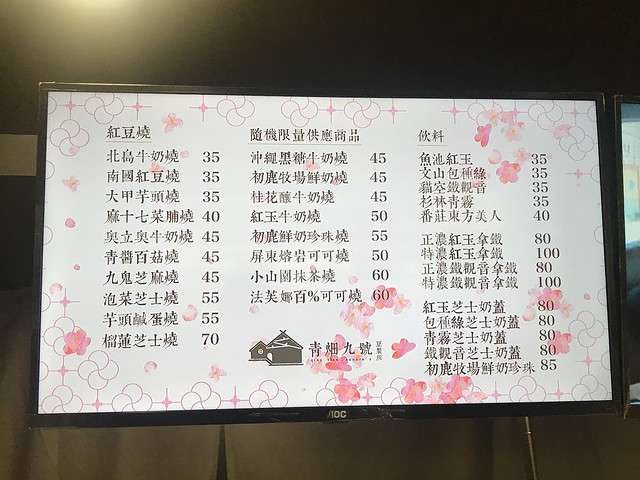 紅豆燒
北島牛奶燒 35
南國紅豆燒 35
大甲芋頭燒 35
麻十七菜脯燒 40
奥立奥牛奶燒 45
青醬百菇燒 45
九鬼芝麻燒 45
泡菜芝士燒 55
芋頭鹹蛋燒 55
榴蓮芝士燒 70
隨機限量供應商品
沖繩黑糖牛奶燒 45
初鹿牧場鮮奶燒 45
桂花釀牛奶燒 45
紅玉牛奶燒 50
初鹿鮮奶珍珠燒 55
屏東熔岩可可燒 50
小山園抹茶燒 60
法芙娜百%可可燒 60
青畑九號
豆製所
飲料
魚池紅玉 35
文山包種綠 35
貓空鐵觀音 35
杉林青霧 35
番莊東方美人 40
正濃紅玉拿鐵 80
特濃紅玉拿鐵 100
正濃鐵觀音拿鐵 80
特濃鐵觀音拿鐵 100
紅玉芝士奶蓋 80
包種綠芝士奶蓋 80
青霧芝士奶蓋 80
鐵觀音芝士奶蓋 80
初鹿牧場鮮奶珍珠 85
AOC